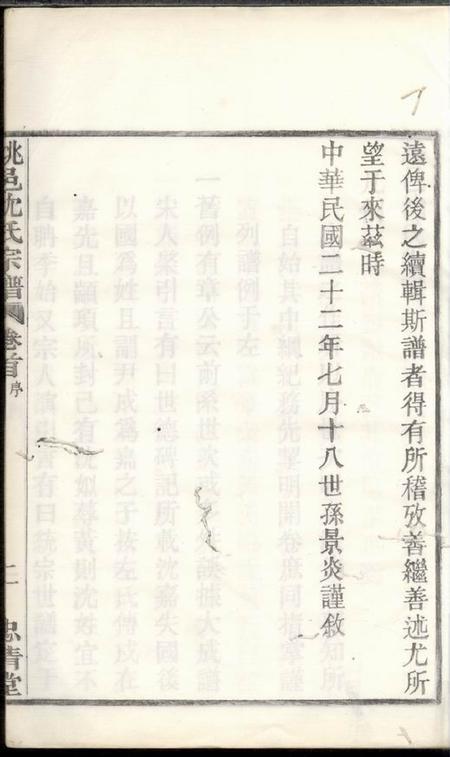 遠俾後之續輯斯譜者得有所稽攷善繼善述尤所
望于來茲時
中華民國二十二年七月十八世孫景炎謹敘
姚邑沈氏宗譜 卷首 序 二 忠清堂